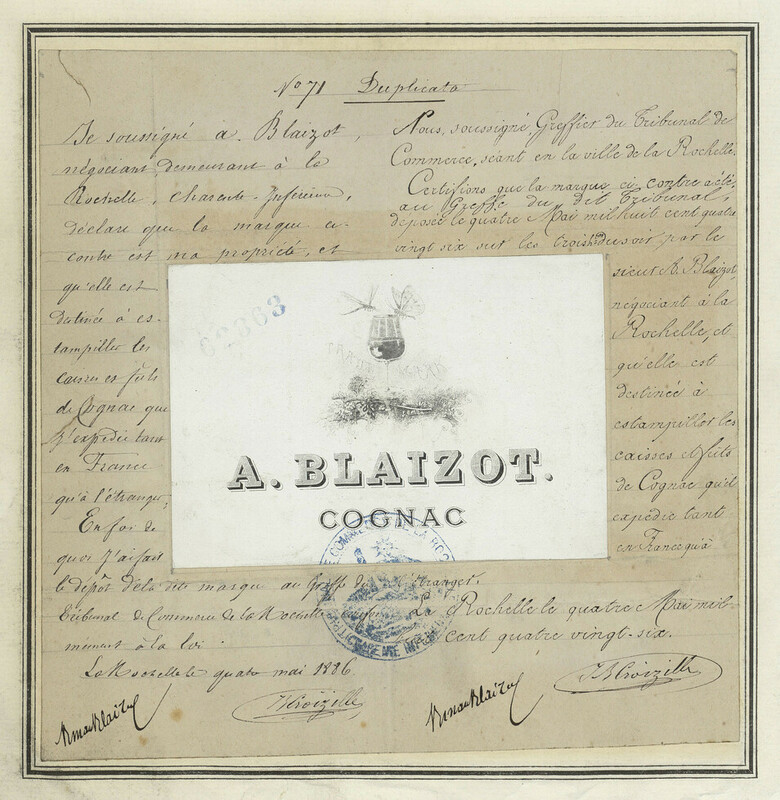 No 71 Duplicata
Je soussigné A. Blaizot,
négociant demeurant à la
Rochelle, Charente-Inférieure,
déclare que la marque ci-
contre est ma propriété, et
qu'elle est
destinée à es-
tampiller les
caisses et fûts
de Cognac que
j'expédie tant
en France
qu'à l'étranger.
En foi de
quoi j'ai fait
le dépôt de la dite marque au Greffe du
Tribunal de Commerce de la Rochelle
moment à la loi.
La Rochelle le quatre mai 1886
Nous, soussigné, Greffier du Tribunal de
Commerce, séant en la ville de la Rochelle.
Certifions que la marque ci-contre a été,
au Greffe du dit Tribunal,
déposée le quatre Mai mil huit cent quatre
vingt six sur les trois h du soir par le
sieur A. Blaizot,
négociant à la
Rochelle, et
qu'elle est
destinée à
estampiller les
caisses et fûts
de Cognac qu'il
expédie tant
en France qu'à
l'étranger.
La Rochelle le quatre Mai mil-
cent quatre vingt-six.
62863
A. BLAIZOT.
COGNAC
COMMERCE DE LA ROCH
CHARENTE INFÉR